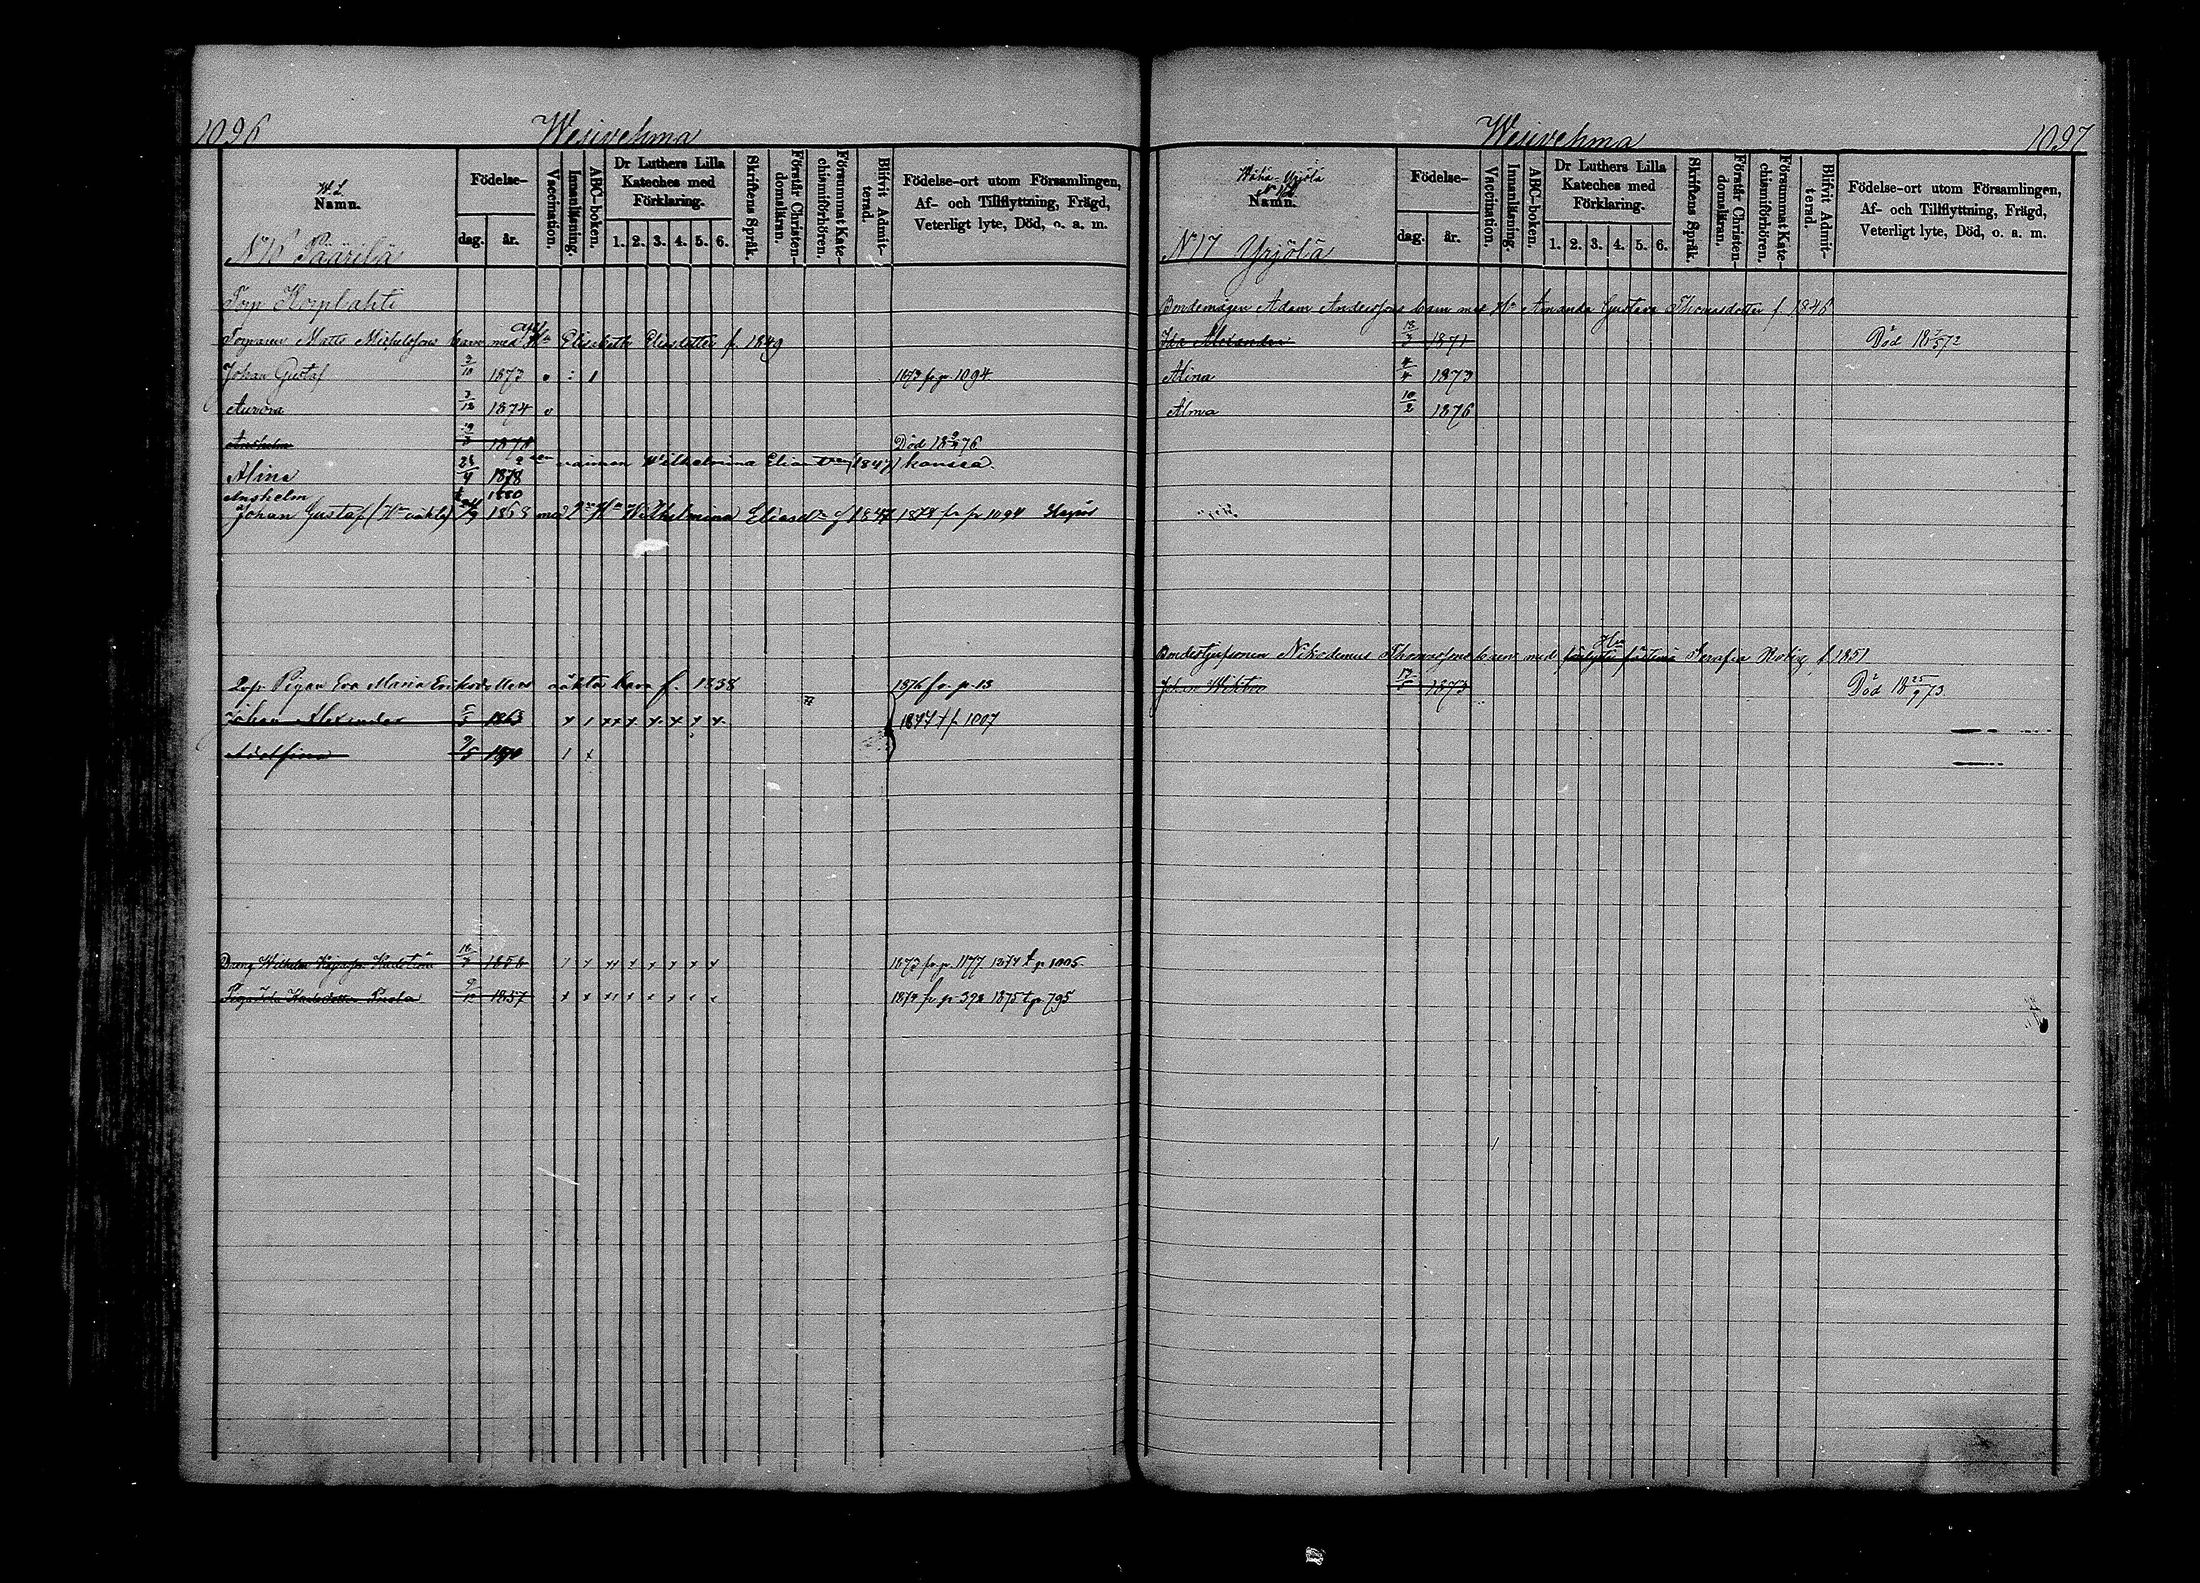 1096 Wesivehma
W. L. Namn.
Födelse-
dag. år.
Vaccination.
Innanläsning.
ABC-boken.
Dr Luthers Lilla Kateches med Förklaring.
1. 2. 3. 4. 5. 6.
Skriftens Språk.
Förstår Christen-domsläran.
Försummat Kate-chismiförhören.
Blifvit Admit-terad.
Födelse-ort utom Församlingen, Af- och Tillflyttning, Frägd, Veterligt lyte, Död, o. a. m.
N 16 Päärilä
Torp Korplahti
Torparen Matts Michelssons barn med afl Hu Elisabeth Eliasdotter f. 1849
Johan Gustaf 2/10 1873 1873 fr. p. 1094
Aurora 3/12 1874
Anshelm 1878 Död 18 76
Alina 23/4 1878 vaimon Wilhelmina Elian 1847 kanssa
Anshelm 1880
Johan Gustaf 1868 med 2 Hu Wilhelmina Eliasdr f 1847 1874 fr p 1094
Pigan Eva Maria Eriksdotters oäkta barn f. 1838 1876 fr. p. 13
Johan Alexander 1863 1877 t p 1007
Adolfina 9/5 1870
Dreng Wilhelm Karlstön 18/3 1858 1873 fr. p. 1177 1874 t. p. 1005
Piga Ida Karlsdotter 1857 1874 fr p 392 1875 t. p. 795
Wesivehma 1097
Wäha-Yrjölä
Namn.
Födelse-
dag. år.
Vaccination.
Innanläsning.
ABC-boken.
Dr Luthers Lilla Kateches med Förklaring.
1. 2. 3. 4. 5. 6.
Skriftens Språk.
Förstår Christen-domsläran.
Försummat Kate-chismiförhören.
Blifvit Admit-terad.
Födelse-ort utom Församlingen, Af- och Tillflyttning, Frägd, Veterligt lyte, Död, o. a. m.
N 17 Yrjölä
Bondemågen Adam Anderssons barn med Hu Amanda Gustava Thomasdotter f. 1846
Ida Alexandra 18/3 1871 Död 18 7/5 72
Alina 4/4 1873
Alma 10/2 1876
Bondestjufsonen Nikodemus Thomassons barn med Hu Serafia Rolig f. 1851
Johan Wiktor 1873 Död 18 25/9 73